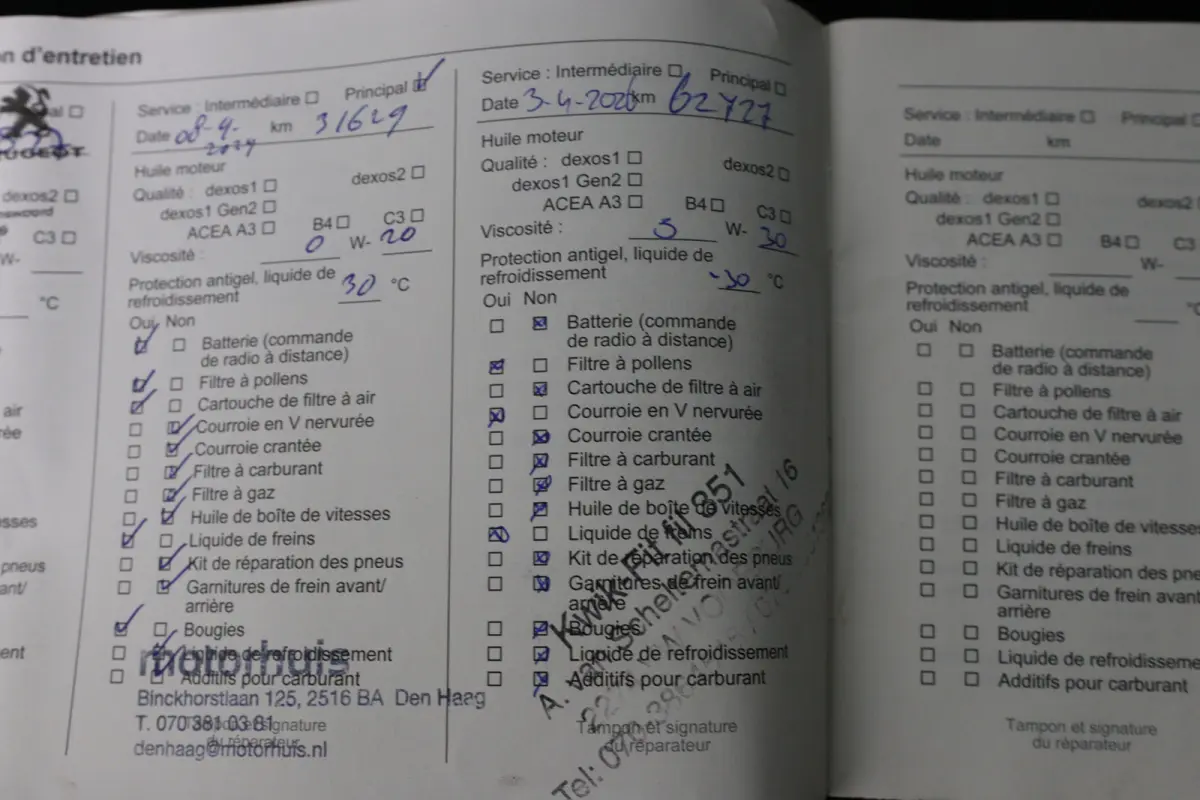 n d'entretien
al ☐
dexos2 ☐
C3 ☐
W-
°C
air
ée
esses
pneus
ant/
ent
Service : Intermédiaire ☐ Principal ☑
Date 08-9-2024 km 31629
Huile moteur
Qualité : dexos1 ☐ dexos2 ☐
dexos1 Gen2 ☐
ACEA A3 ☐ B4 ☐ C3 ☐
Viscosité : 0 W- 20
Protection antigel, liquide de
refroidissement 30 °C
Oui Non
☑ ☐ Batterie (commande
de radio à distance)
☑ ☐ Filtre à pollens
☑ ☐ Cartouche de filtre à air
☐ ☑ Courroie en V nervurée
☐ ☑ Courroie crantée
☐ ☑ Filtre à carburant
☐ ☑ Filtre à gaz
☐ ☑ Huile de boîte de vitesses
☑ ☐ Liquide de freins
☐ ☑ Kit de réparation des pneus
☐ ☑ Garnitures de frein avant/
arrière
☑ ☐ Bougies
☐ ☑ Liquide de refroidissement
☐ ☑ Additifs pour carburant
motorhuis
Binckhorstlaan 125, 2516 BA Den Haag
T. 070 381 03 81
denhaag@motorhuis.nl
signature
du réparateur
Service : Intermédiaire ☐ Principal ☐
Date 3-4-2026 km 62727
Huile moteur
Qualité : dexos1 ☐ dexos2 ☐
dexos1 Gen2 ☐
ACEA A3 ☐ B4 ☐ C3 ☐
Viscosité : 5 W- 30
Protection antigel, liquide de
refroidissement -30 °C
Oui Non
☐ ☒ Batterie (commande
de radio à distance)
☒ ☐ Filtre à pollens
☐ ☒ Cartouche de filtre à air
☒ ☐ Courroie en V nervurée
☐ ☒ Courroie crantée
☐ ☒ Filtre à carburant
☐ ☒ Filtre à gaz
☐ ☒ Huile de boîte de vitesses
☒ ☐ Liquide de freins
☐ ☒ Kit de réparation des pneus
☐ ☒ Garnitures de frein avant/
arrière
☐ ☒ Bougies
☐ ☒ Liquide de refroidissement
☐ ☒ Additifs pour carburant
Kwik-Fit fil 851
A. van Scheltemastraat 16
Tel: 070
Tampon et signature
du réparateur
Service : Intermédiaire ☐ Principal ☐
Date km
Huile moteur
Qualité : dexos1 ☐ dexos2
dexos1 Gen2 ☐
ACEA A3 ☐ B4 ☐ C3
Viscosité : W-
Protection antigel, liquide de
refroidissement
Oui Non
☐ ☐ Batterie (commande
de radio à distance)
☐ ☐ Filtre à pollens
☐ ☐ Cartouche de filtre à air
☐ ☐ Courroie en V nervurée
☐ ☐ Courroie crantée
☐ ☐ Filtre à carburant
☐ ☐ Filtre à gaz
☐ ☐ Huile de boîte de vitesses
☐ ☐ Liquide de freins
☐ ☐ Kit de réparation des pne
☐ ☐ Garnitures de frein avant
arrière
☐ ☐ Bougies
☐ ☐ Liquide de refroidisseme
☐ ☐ Additifs pour carburant
Tampon et signature
du réparateur